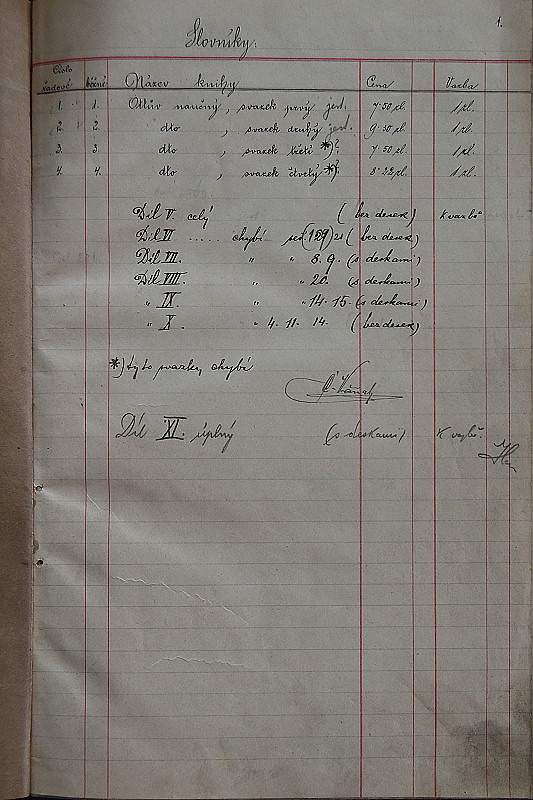 1.
Slovníky.
Číslo
řadové běžné Název knihy Cena Vazba
1. 1. Ottův naučný, svazek prvý jest. 7·50 zl. 1 zl.
2. 2. dto, svazek druhý jest. 9·30 zl. 1 zl.
3. 3. dto, svazek třetí *)? 7·50 zl. 1 zl.
4. 4. dto, svazek čtvrtý *)? 8·22 zl. 1 zl.
Díl V. celý (bez desek) K vazbě
Díl VI ..... chybí seš. (129) 21 (bez desek)
Díl VII. " " 8. 9. (s deskami)
Díl VIII. " " 20. (s deskami)
" IX " " 14. 15. (s deskami)
" X. " 4. 11. 14. (bez desek)
*) tyto svazky chybí
Díl XI. úplný (s deskami) K vazbě.